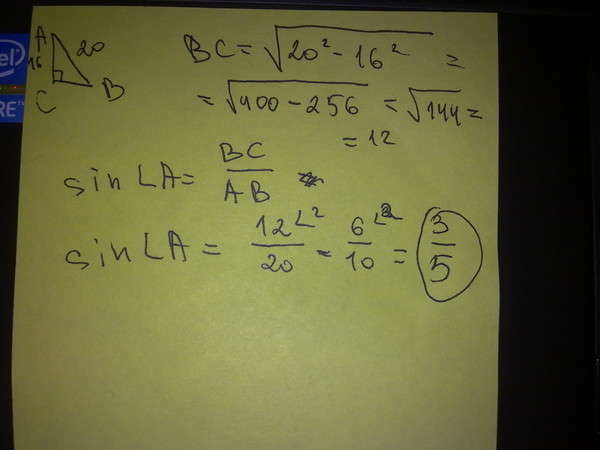 A
20
16
C
B
BC = √20² - 16² =
= √400 - 256 = √144 =
= 12
sin ∠A = BC/AB
sin ∠A = 12∠²/20 = 6∠²/10 = 3/5
el
RE™